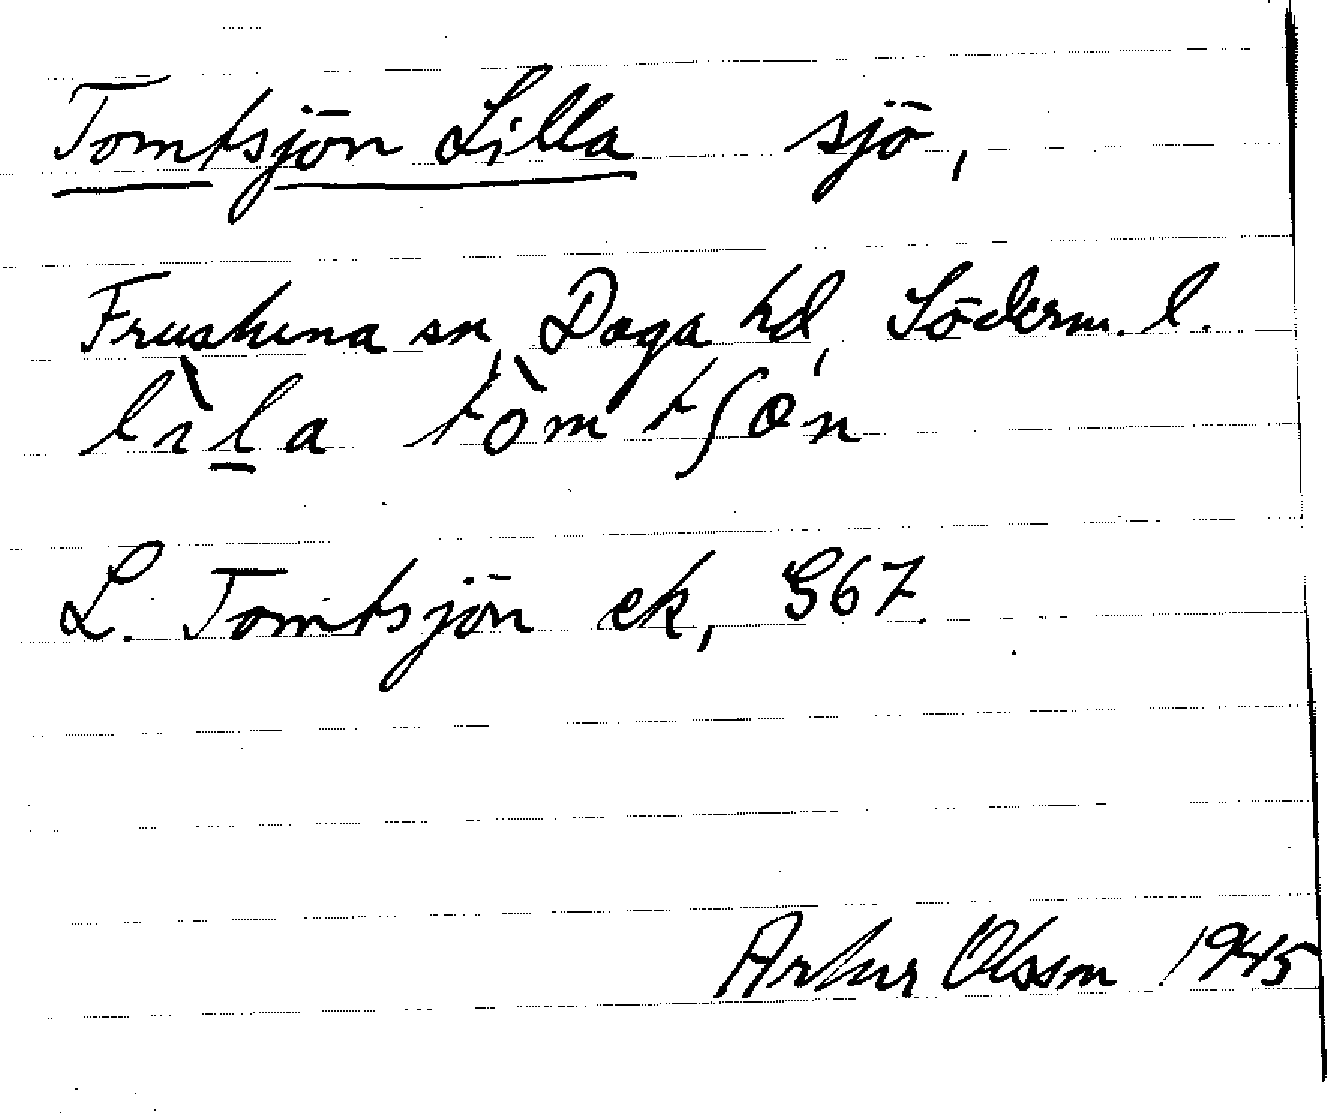 Tomtsjön Lilla sjö,
Frustuna sn, Daga hd, Söderm. l.
lìl̲a tòmtʃɵn
L. Tomtsjön ek, G67.
Arthur Olsson 1945